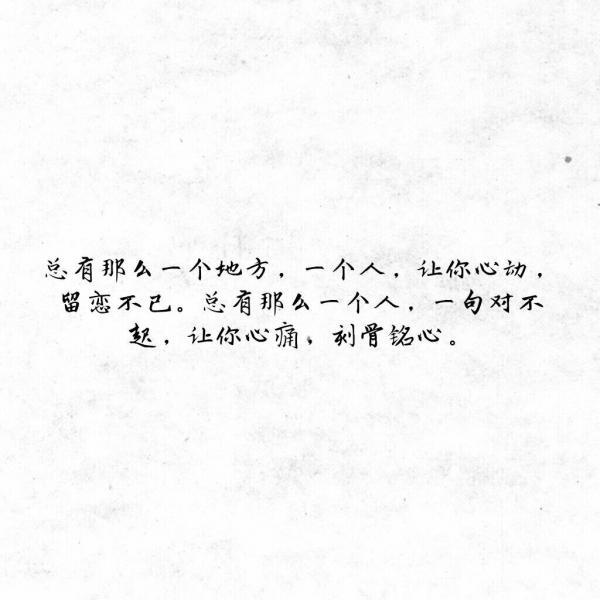 总有那么一个地方，一个人，让你心动，
留恋不已。总有那么一个人，一句对不
起，让你心痛，刻骨铭心。